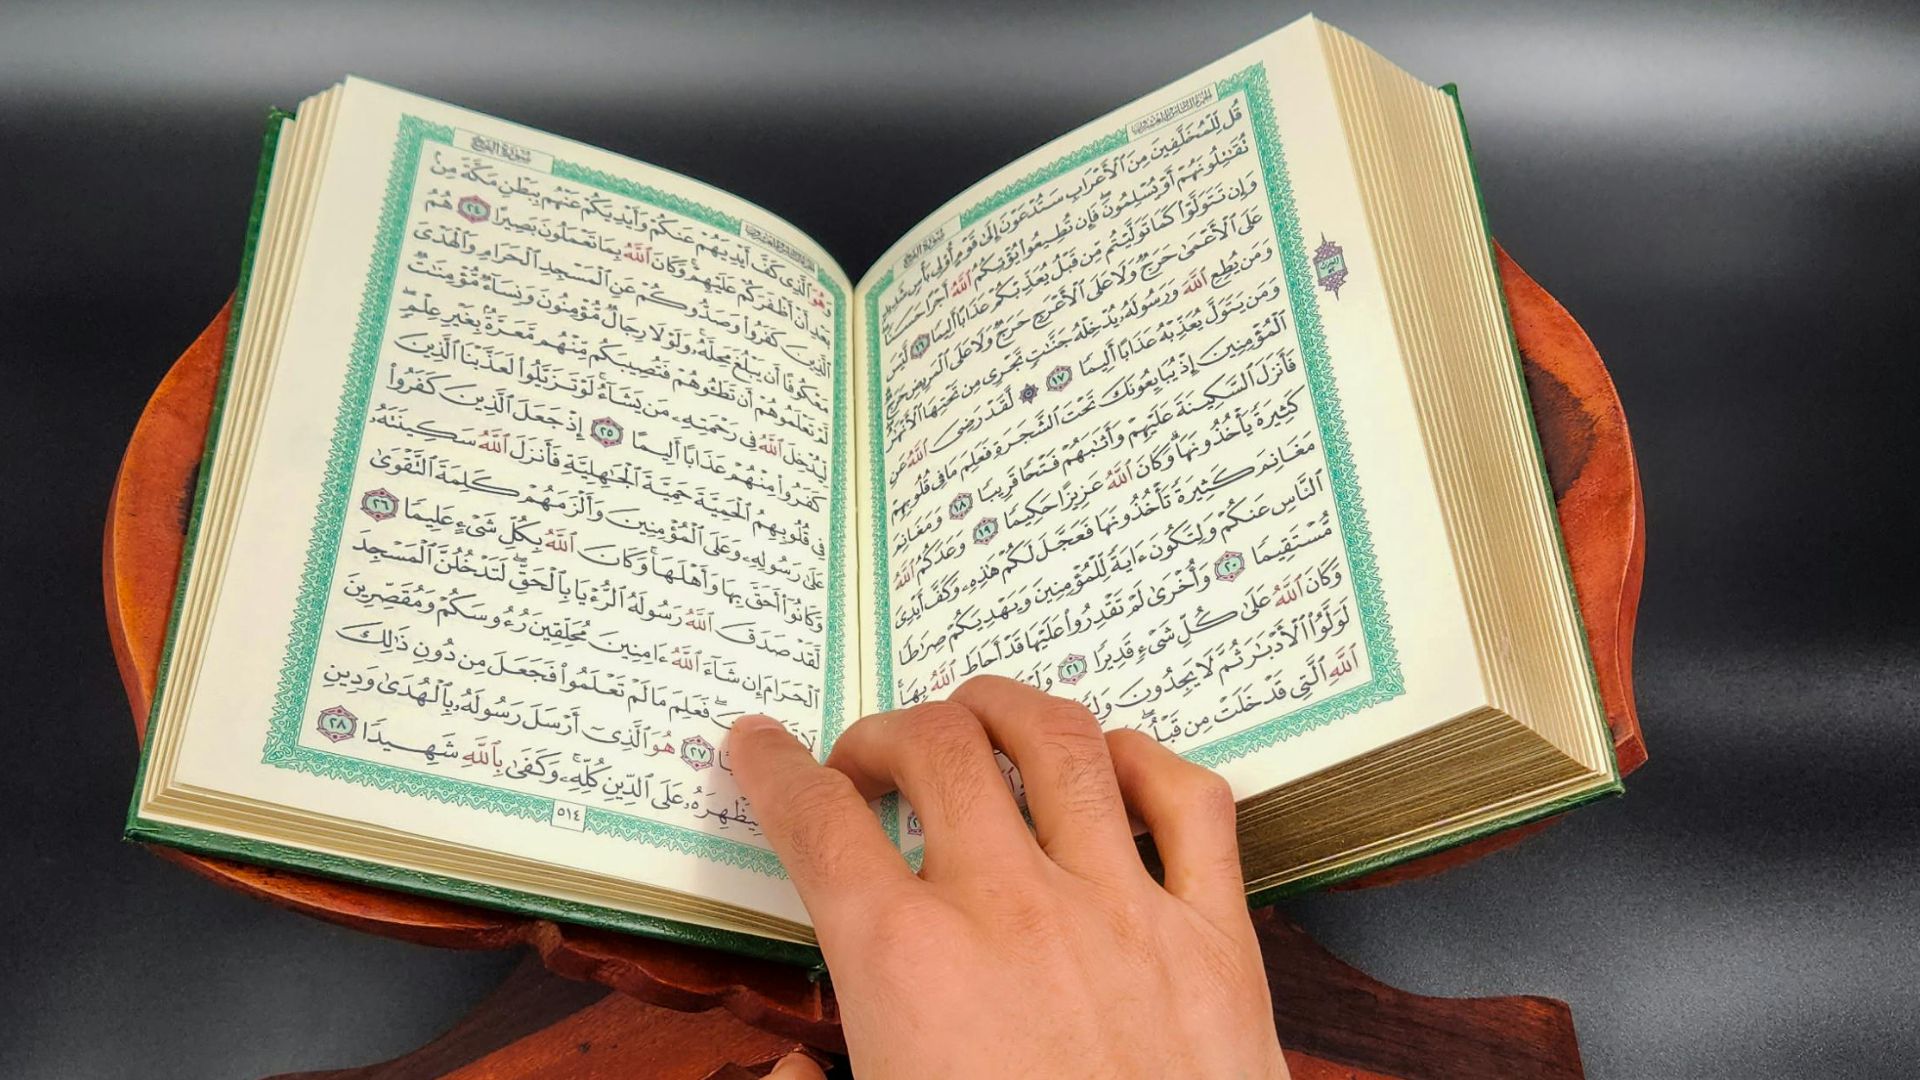 الجزء السادس والعشرون سورة الفتح
قُل لِّلْمُخَلَّفِينَ مِنَ ٱلْأَعْرَابِ سَتُدْعَوْنَ إِلَىٰ قَوْمٍ أُو۟لِى بَأْسٍ شَدِيدٍ
تُقَـٰتِلُونَهُمْ أَوْ يُسْلِمُونَ ۖ فَإِن تُطِيعُوا۟ يُؤْتِكُمُ ٱللَّهُ أَجْرًا حَسَنًا ۖ
وَإِن تَتَوَلَّوْا۟ كَمَا تَوَلَّيْتُم مِّن قَبْلُ يُعَذِّبْكُمْ عَذَابًا أَلِيمًا ١٦ لَّيْسَ
عَلَى ٱلْأَعْمَىٰ حَرَجٌ وَلَا عَلَى ٱلْأَعْرَجِ حَرَجٌ وَلَا عَلَى ٱلْمَرِيضِ حَرَجٌ ۗ
وَمَن يُطِعِ ٱللَّهَ وَرَسُولَهُۥ يُدْخِلْهُ جَنَّـٰتٍ تَجْرِى مِن تَحْتِهَا ٱلْأَنْهَـٰرُ ۖ
وَمَن يَتَوَلَّ يُعَذِّبْهُ عَذَابًا أَلِيمًا ١٧ ۞ لَّقَدْ رَضِىَ ٱللَّهُ عَنِ
ٱلْمُؤْمِنِينَ إِذْ يُبَايِعُونَكَ تَحْتَ ٱلشَّجَرَةِ فَعَلِمَ مَا فِى قُلُوبِهِمْ
فَأَنزَلَ ٱلسَّكِينَةَ عَلَيْهِمْ وَأَثَـٰبَهُمْ فَتْحًا قَرِيبًا ١٨ وَمَغَانِمَ
كَثِيرَةً يَأْخُذُونَهَا ۗ وَكَانَ ٱللَّهُ عَزِيزًا حَكِيمًا ١٩ وَعَدَكُمُ ٱللَّهُ
مَغَانِمَ كَثِيرَةً تَأْخُذُونَهَا فَعَجَّلَ لَكُمْ هَـٰذِهِۦ وَكَفَّ أَيْدِىَ
ٱلنَّاسِ عَنكُمْ وَلِتَكُونَ ءَايَةً لِّلْمُؤْمِنِينَ وَيَهْدِيَكُمْ صِرَٰطًا
مُّسْتَقِيمًا ٢٠ وَأُخْرَىٰ لَمْ تَقْدِرُوا۟ عَلَيْهَا قَدْ أَحَاطَ ٱللَّهُ بِهَا ۚ
وَكَانَ ٱللَّهُ عَلَىٰ كُلِّ شَىْءٍ قَدِيرًا ٢١
لَوَلَّوُا۟ ٱلْأَدْبَـٰرَ ثُمَّ لَا يَجِدُونَ
ٱللَّهِ ٱلَّتِى قَدْ خَلَتْ مِن قَبْلُ ۖ
الحزب
الجزء السادس والعشرون سورة الفتح
وَهُوَ ٱلَّذِى كَفَّ أَيْدِيَهُمْ عَنكُمْ وَأَيْدِيَكُمْ عَنْهُم بِبَطْنِ مَكَّةَ مِنۢ
بَعْدِ أَنْ أَظْفَرَكُمْ عَلَيْهِمْ ۚ وَكَانَ ٱللَّهُ بِمَا تَعْمَلُونَ بَصِيرًا ٢٤ هُمُ
ٱلَّذِينَ كَفَرُوا۟ وَصَدُّوكُمْ عَنِ ٱلْمَسْجِدِ ٱلْحَرَامِ وَٱلْهَدْىَ
مَعْكُوفًا أَن يَبْلُغَ مَحِلَّهُۥ ۚ وَلَوْلَا رِجَالٌ مُّؤْمِنُونَ وَنِسَآءٌ مُّؤْمِنَـٰتٌ
لَّمْ تَعْلَمُوهُمْ أَن تَطَـُٔوهُمْ فَتُصِيبَكُم مِّنْهُم مَّعَرَّةٌۢ بِغَيْرِ عِلْمٍ ۖ
لِّيُدْخِلَ ٱللَّهُ فِى رَحْمَتِهِۦ مَن يَشَآءُ ۚ لَوْ تَزَيَّلُوا۟ لَعَذَّبْنَا ٱلَّذِينَ
كَفَرُوا۟ مِنْهُمْ عَذَابًا أَلِيمًا ٢٥ إِذْ جَعَلَ ٱلَّذِينَ كَفَرُوا۟
فِى قُلُوبِهِمُ ٱلْحَمِيَّةَ حَمِيَّةَ ٱلْجَـٰهِلِيَّةِ فَأَنزَلَ ٱللَّهُ سَكِينَتَهُۥ
عَلَىٰ رَسُولِهِۦ وَعَلَى ٱلْمُؤْمِنِينَ وَأَلْزَمَهُمْ كَلِمَةَ ٱلتَّقْوَىٰ
وَكَانُوٓا۟ أَحَقَّ بِهَا وَأَهْلَهَا ۚ وَكَانَ ٱللَّهُ بِكُلِّ شَىْءٍ عَلِيمًا ٢٦
لَّقَدْ صَدَقَ ٱللَّهُ رَسُولَهُ ٱلرُّءْيَا بِٱلْحَقِّ ۖ لَتَدْخُلُنَّ ٱلْمَسْجِدَ
ٱلْحَرَامَ إِن شَآءَ ٱللَّهُ ءَامِنِينَ مُحَلِّقِينَ رُءُوسَكُمْ وَمُقَصِّرِينَ
لَا ۖ فَعَلِمَ مَا لَمْ تَعْلَمُوا۟ فَجَعَلَ مِن دُونِ ذَٰلِكَ
٢٧ هُوَ ٱلَّذِىٓ أَرْسَلَ رَسُولَهُۥ بِٱلْهُدَىٰ وَدِينِ
لِيُظْهِرَهُۥ عَلَى ٱلدِّينِ كُلِّهِۦ ۚ وَكَفَىٰ بِٱللَّهِ شَهِيدًا ٢٨
٥١٤